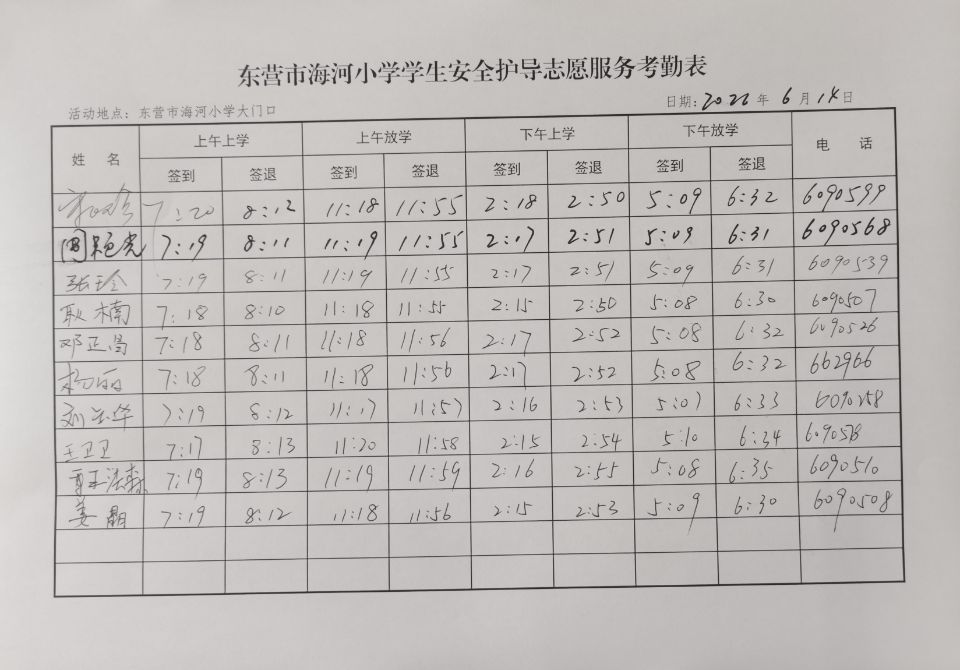 东营市海河小学学生安全护导志愿服务考勤表
活动地点：东营市海河小学大门口 日期：2022年6月14日
姓 名 上午上学 上午放学 下午上学 下午放学 电 话
签到 签退 签到 签退 签到 签退 签到 签退
7:20 8:12 11:18 11:55 2:18 2:50 5:09 6:32 6090599
7:19 8:11 11:19 11:55 2:17 2:51 5:09 6:31 6090568
张玲 7:19 8:11 11:19 11:55 2:17 2:51 5:09 6:31 6090539
耿楠 7:18 8:10 11:18 11:55 2:15 2:50 5:08 6:30 6090507
邓正昌 7:18 8:11 11:18 11:56 2:17 2:52 5:08 6:32 6090526
杨丽 7:18 8:11 11:18 11:56 2:17 2:52 5:08 6:32 662966
7:19 8:12 11:17 11:57 2:16 2:53 5:07 6:33 6090258
王卫卫 7:17 8:13 11:20 11:58 2:15 2:54 5:10 6:34
7:19 8:13 11:19 11:59 2:16 2:55 5:08 6:35 6090510
姜晶 7:19 8:12 11:18 11:56 2:15 2:53 5:09 6:30 6090508